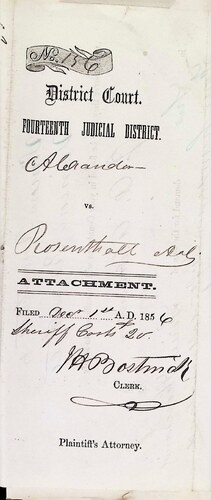 No. 156
District Court.
FOURTEENTH JUDICIAL DISTRICT.
Alexander
vs.
Rosenthall
ATTACHMENT.
FILED Decr 1st A. D. 1856
Sheriff Costs $ 20.
J H Bostwick
CLERK.
Plaintiff's Attorney.